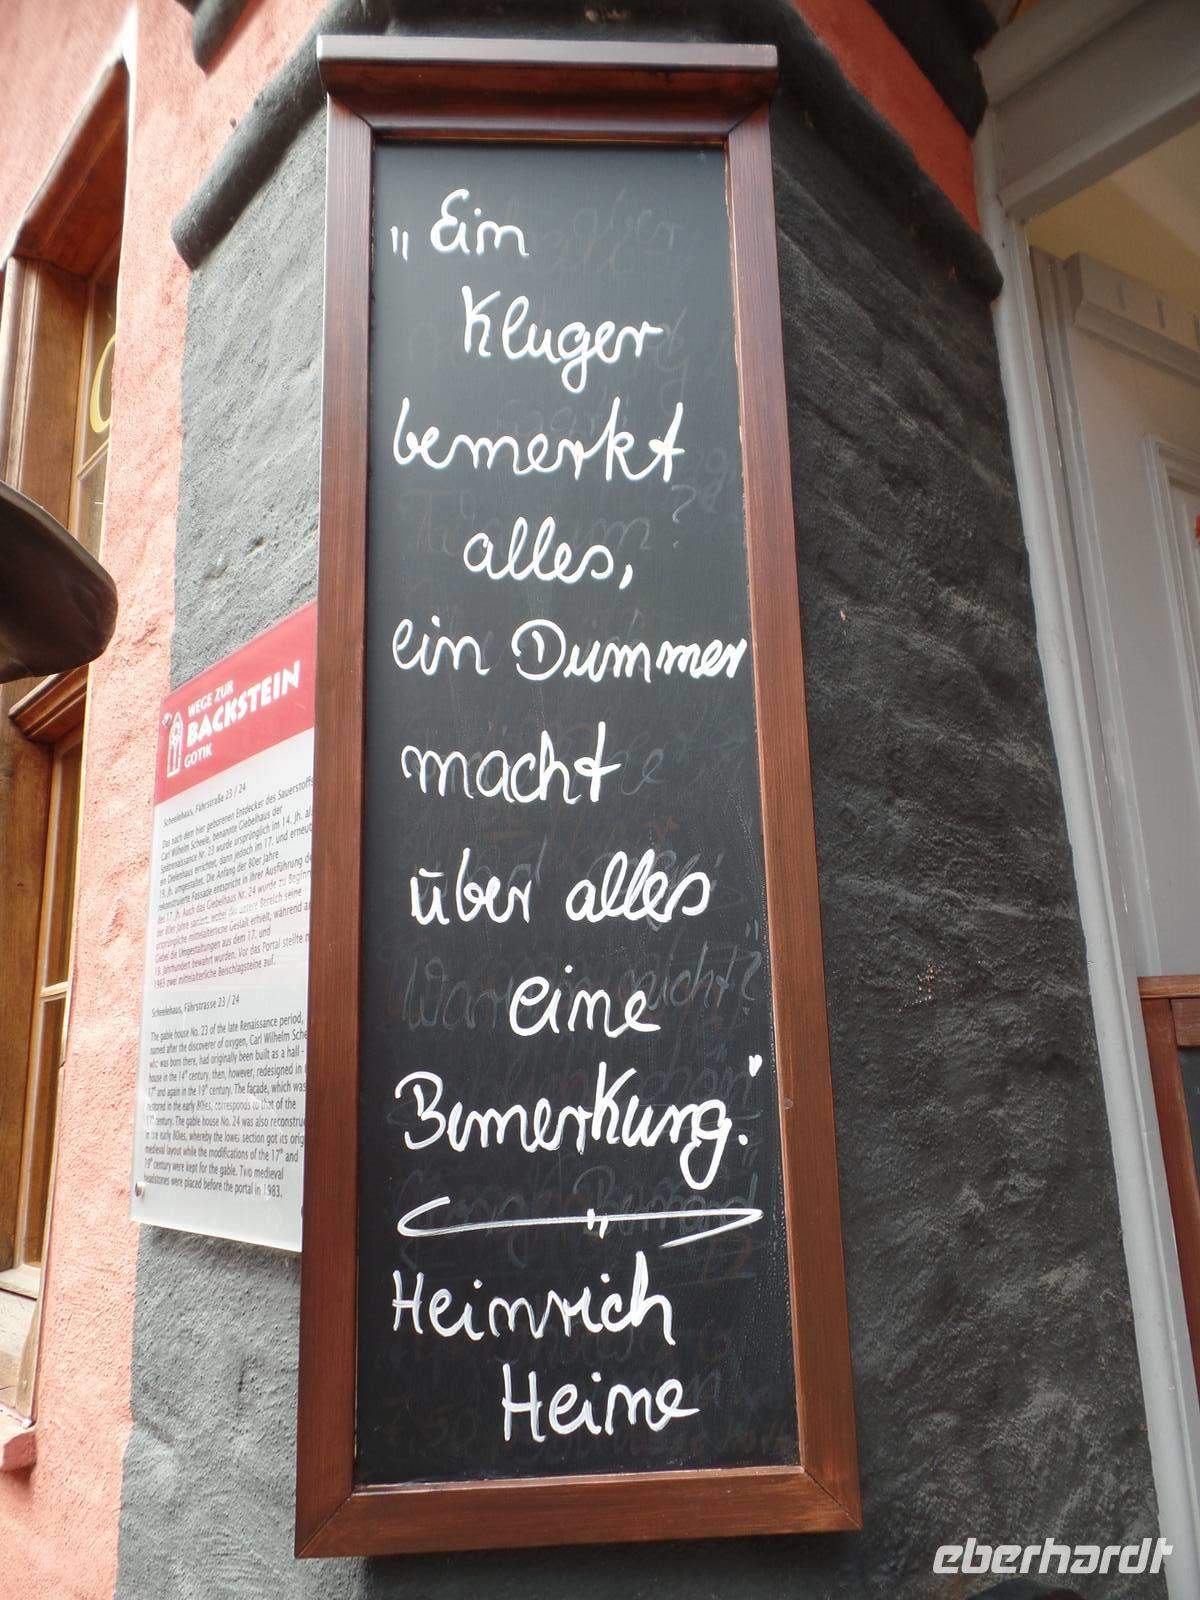 „Ein
Kluger
bemerkt
alles,
ein Dummer
macht
über alles
eine
Bemerkung."
Heinrich
Heine
WEGE ZUR
BACKSTEIN
GOTIK
Scheelehaus, Fährstraße 23 / 24
Das nach dem hier geborenen Entdecker des Sauerstoffs
Carl Wilhelm Scheele, benannte Giebelhaus der
Spätrenaissance Nr. 23 wurde ursprünglich im 14. Jh. als
ein Dielenhaus errichtet, dann jedoch im 17. und erneut
19. Jh. umgestaltet. Die Anfang der 80er Jahre
rekonstruierte Fassade entspricht in ihrer Ausführung de
des 17. Jh. Auch das Giebelhaus Nr. 24 wurde zu Beginn
der 80er Jahre saniert, wobei der untere Bereich seine
ursprüngliche mittelalterliche Gestalt erhielt, während a
Giebel die Umgestaltungen aus dem 17. und
19. Jahrhundert bewahrt wurden. Vor das Portal stellte
1983 zwei mittelalterliche Beischlagsteine auf.
Scheelehaus, Fährstrasse 23 / 24
The gable house No. 23 of the late Renaissance period,
named after the discoverer of oxygen, Carl Wilhelm Schee
who was born there, had originally been built as a hall -
house in the 14th century, then, however, redesigned in
17th and again in the 19th century. The façade, which was
restored in the early 80ies, corresponds to that of the
17th century. The gable house No. 24 was also reconstruc
in the early 80ies, whereby the lower section got its orig
medieval layout while the modifications of the 17th and
19th century were kept for the gable. Two medieval
headstones were placed before the portal in 1983.
eberhardt